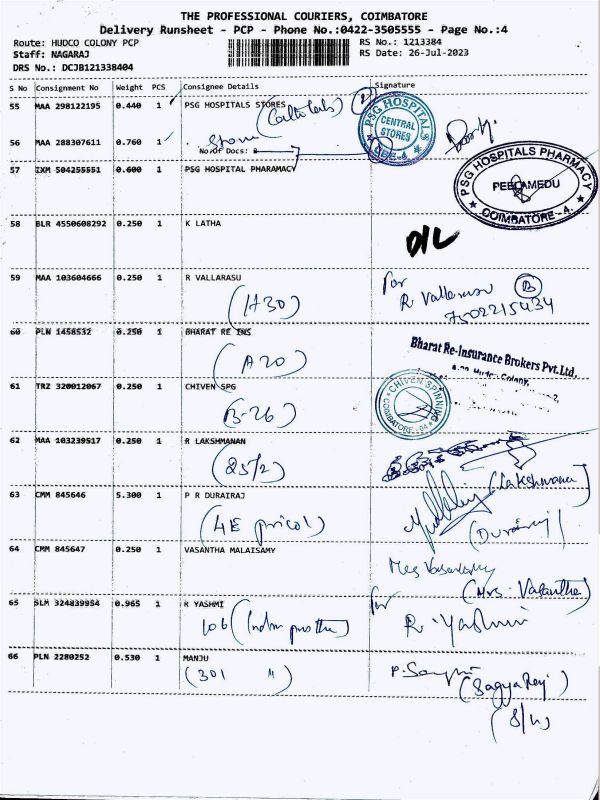 THE PROFESSIONAL COURIERS, COIMBATORE
Delivery Runsheet - PCP - Phone No.:0422-3505555 - Page No.:4
Route: HUDCO COLONY PCP
Staff: NAGARAJ
DRS No.: DCJB121338404
RS No.: 1213384
RS Date: 26-Jul-2023
S No Consignment No Weight PCS Consignee Details Signature
55 MAA 298122195 0.440 1 PSG HOSPITALS STORES
PSG HOSPITALS
CENTRAL
STORES
56 MAA 288307611 0.760 1
Store
No.Of Docs: 2
57 IXM 504255551 0.600 1 PSG HOSPITAL PHARAMACY
PSG HOSPITALS PHARMACY
PEELAMEDU
COIMBATORE-4.
58 BLR 4550608292 0.250 1 K LATHA
D/L
59 MAA 103604666 0.250 1 R VALLARASU
(A30)
For
R Vallarasu B
7502215434
60 PLN 1458532 0.250 1 BHARAT RE INS
(A20)
Bharat Re-Insurance Brokers Pvt.Ltd.
Hudco Colony,
61 TRZ 320012067 0.250 1 CHIVEN SPG
(B-26)
CHIVEN SPINNING
COIMBATORE - 04
62 MAA 103239517 0.250 1 R LAKSHMANAN
(25/2)
(Lakshmana)
63 CMM 845646 5.300 1 P R DURAIRAJ
(4E pricol)
(Durairaj)
64 CMM 845647 0.250 1 VASANTHA MALAISAMY
(Mrs. Vasantha)
65 SLM 324839954 0.965 1 R YASHMI
106
for
R. Yashmi
66 PLN 2280252 0.530 1 MANJU
(301 ")
(S/w)